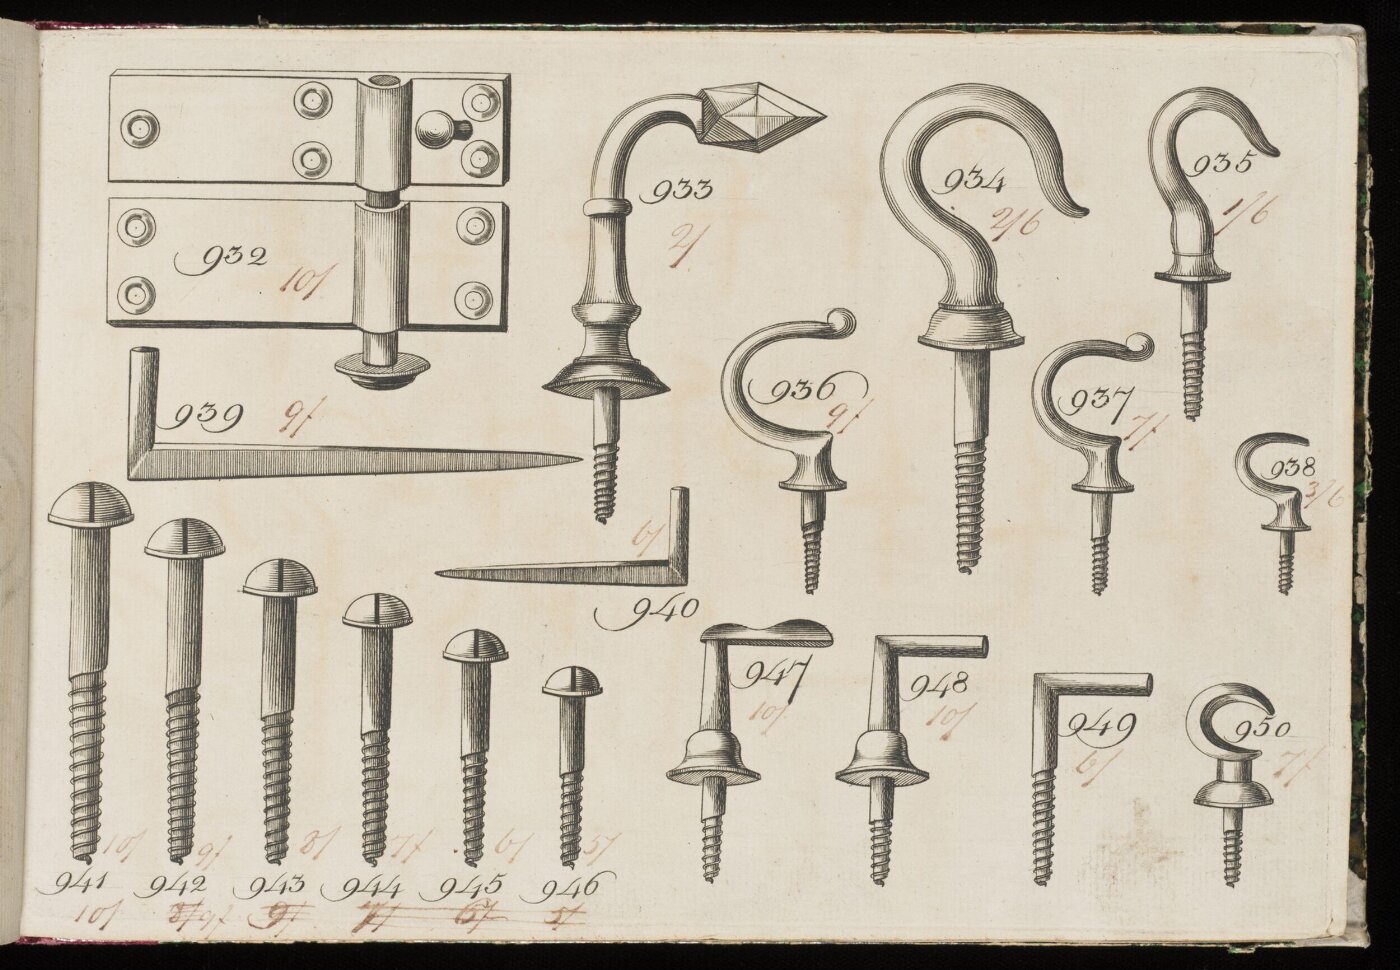 932
10/
933
2/
934
2/6
935
1/6
936
9/
937
7/
938
3/6
939
9/
940
6/
947
10/
948
10/
949
6/
950
7/
10/
9/
8/
7/
6/
5/
941
942
943
944
945
946
10/
8/ 9/
9/
7/
6/
5/